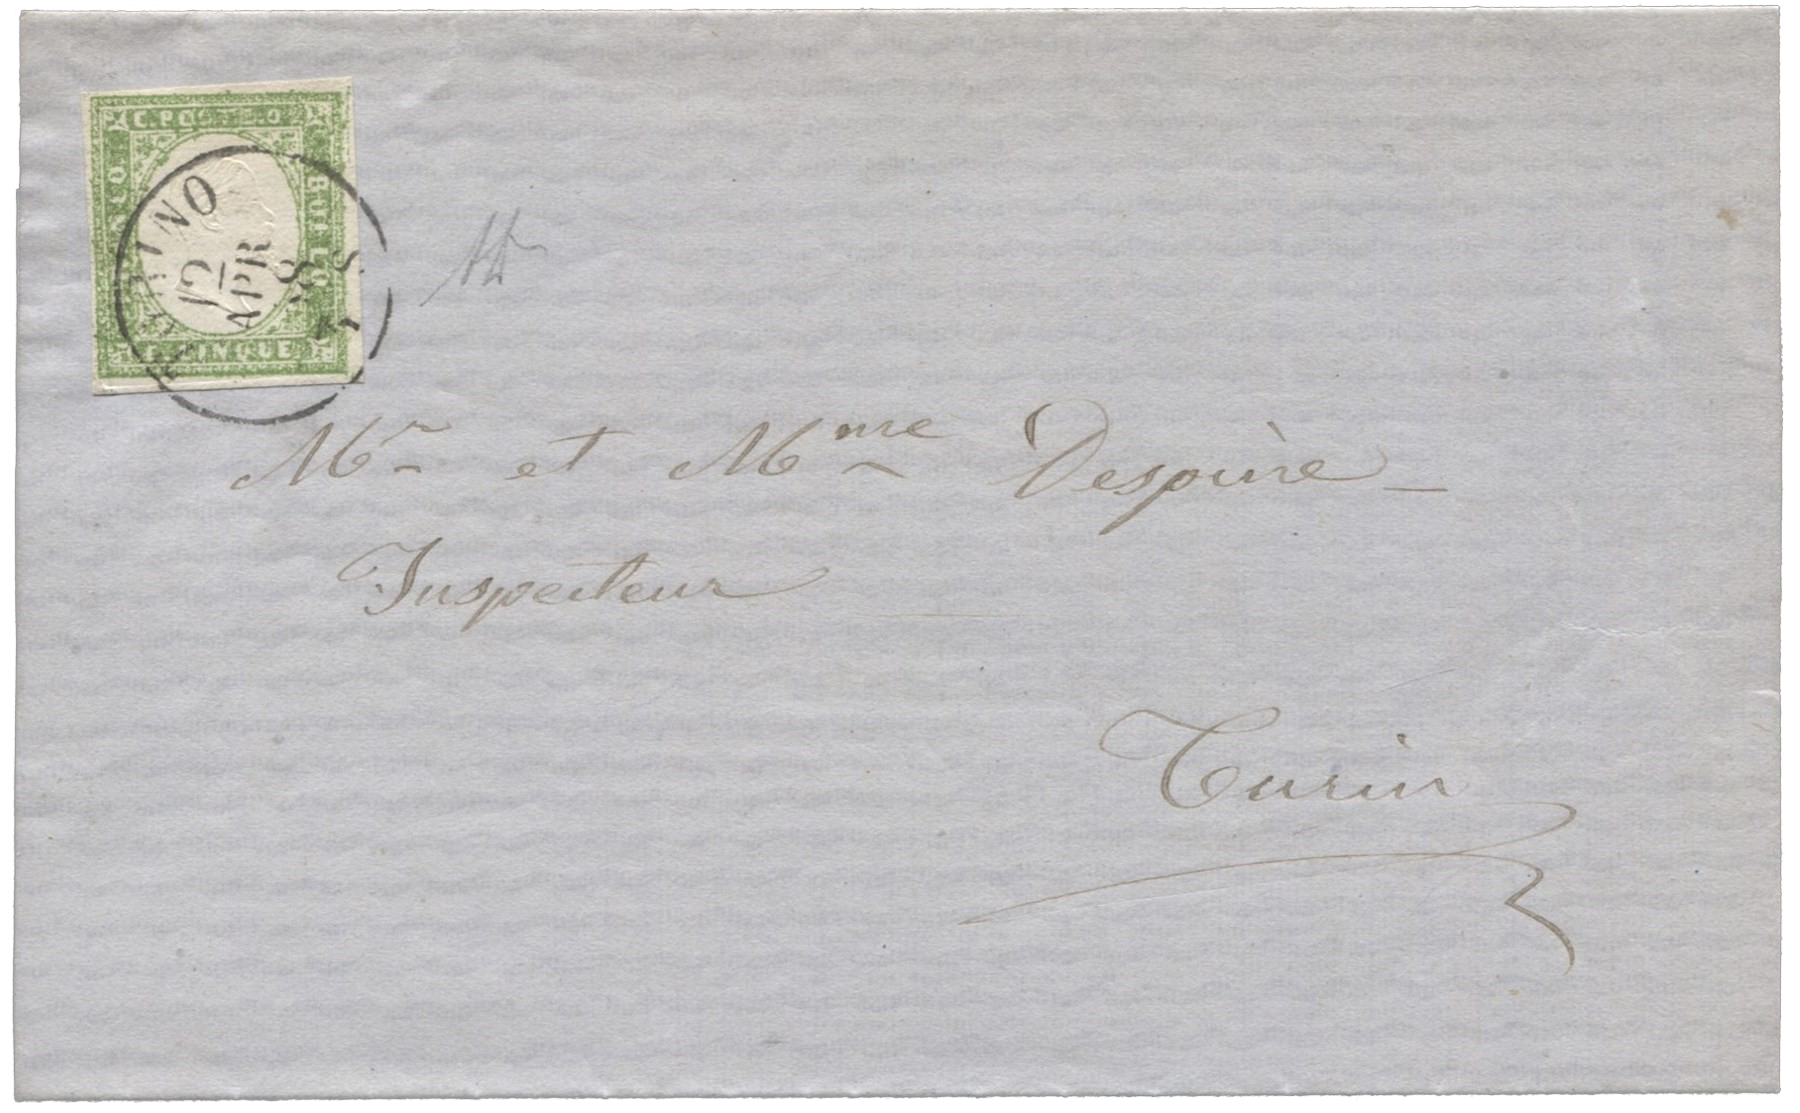 C. POSTE 02
BOLLO
C. CINQUE
TORINO
12
APR
8 S
Mr et Mme Despine
Inspecteur
Turin